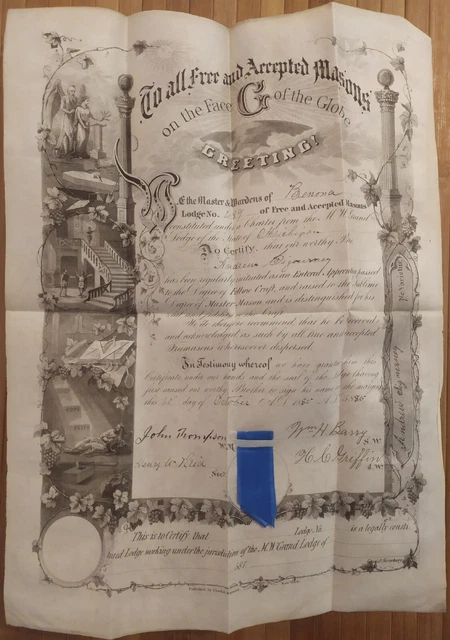 To all Free and Accepted Masons
on the Face G of the Globe
GREETING!
We the Master & Wardens of Benona
Lodge No. 289 of Free and Accepted Masons
constituted under a Charter from the M.W. Grand
Lodge of the State of Michigan
Do Certify, that our worthy Bro
Andrew
has been regularly initiated as an Entered Apprentice passed
to the Degree of Fellow Craft, and raised to the Sublime
Degree of Master Mason and is distinguished for his
the Craft
We therefore recommend that he be received
and acknowledged as such by all true and accepted
Freemasons wheresoever dispersed.
In Testimony whereof we have granted him this
Certificate under our hands and the seal of the Lodge (having
first caused our worthy Brother to sign his name in the margin)
this day of October
John Thompson W.M.
Wm H Barry S.W.
Henry Sec.
H. C. Griffin J.W.
Ne Varietur
Andrew
This is to Certify that Lodge No. is a legally consti-
tuted Lodge working under the jurisdiction of the M.W. Grand Lodge of
188